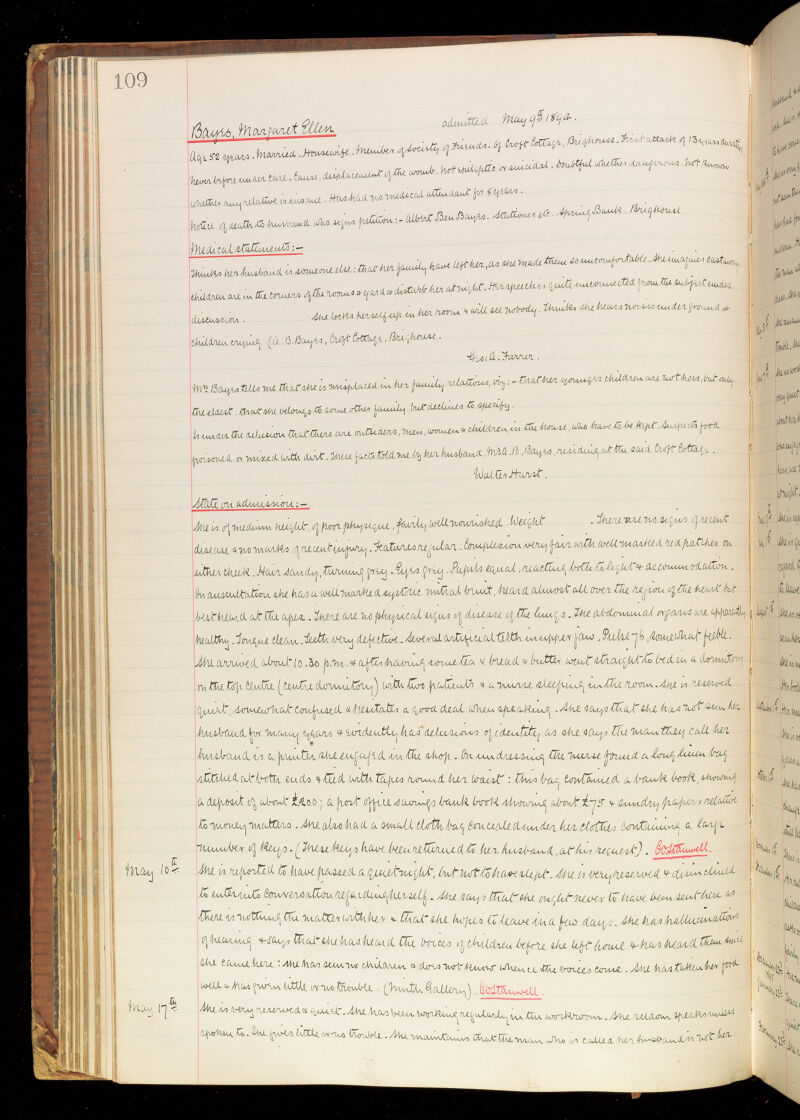 109
Bayes, Margaret Ellen
admitted May 9th 1894.
Age 52 years. Married. Housewife. Member of Society of Friends. of Croft Cottage, Brighouse. First attack of 13 years duration
Never before under care. Cause, displacement of the womb. Not epileptic or suicidal. Doubtful whether dangerous. Not known
whether any relative is insane. Has had no medical attendant for 8 years.
Notice of death to husband who signs petition:- Albert Ben Bayes. Stationer etc. Spring Bank. Brighouse.
Medical statements:-
Thinks her husband is someone else: that her family have left her, as she made them so uncomfortable. She imagines castaway
children are in the corners of the rooms & yard & disturb her at night. Her speech is quite unconnected from the subject under
discussion. She locks herself up in her room & will see nobody. Thinks she hears noises under ground &
children crying (A. B. Bayes, Croft Cottage. Brighouse.
Geo: A. Farrer.
Mrs Bayes tells me that she is misplaced in her family relations, viz:- that her younger children are not hers, but only
the eldest. that she belongs to some other family, but declines to specify.
Is under the delusion that there are outsiders, men, women & children in the house, who have to be kept. Suspects food
poisoned or mixed with dirt. These facts told me by her husband, Mr A. B. Bayes, residing at the said Croft Cottage.
Walter Hurst.
State on admission:-
She is of medium height, of poor physique, fairly well nourished. Weight . There are no signs of recent
disease & no marks of recent injury. Features regular. Complexion very fair with well marked red patches on
either cheek. Hair sandy, turning grey. Eyes grey. Pupils equal, reacting both to light & accommodation.
On auscultation she has a well marked systolic mitral bruit, heard almost all over the region of the heart but
best heard at the apex. There are no physical signs of disease of the lungs. The abdominal organs are apparently
healthy. Tongue clean. Teeth very defective. Several artificial teeth in upper jaw. Pulse 76, somewhat feeble.
She arrived about 10.30 p.m. & after having some tea & bread & butter went straight to bed in a dormitory
on the top centre (centre dormitory) with two patients & a nurse sleeping in the room. She is reserved
quiet, somewhat confused & hesitates a good deal when speaking. She says that she has not seen her
husband for many years & evidently has delusions of identity as she says the man they call her
husband is a printer she engaged in the shop. On undressing the nurse found a long linen bag
stitched at both ends & tied with tapes round her waist: this bag contained a bank book, showing
a deposit of about £200; a post office savings bank book showing about £75 & sundry papers relative
to money matters. She also had a small cloth bag concealed under her clothes containing a large
number of keys. (These keys have been returned to her husband, at his request).
May 10th
She is reported to have passed a quiet night, but not to have slept. She is very reserved & disinclined
to enter into conversation regarding herself. She says that she ought never to have been sent here as
there is nothing the matter with her & that she hopes to leave in a few days. She has hallucinations
of hearing & says that she has heard the voices of children before she left home & has heard them since
she came here: she has seen no children & does not know whence the voices come. She has taken her food
well & has given little or no trouble. (Ninth Gallery).
May 17th
She is very reserved & quiet. She has been working regularly in the workroom. She seldom speaks unless
spoken to. She gives little or no trouble. She maintains that the man who is called her husband is not her